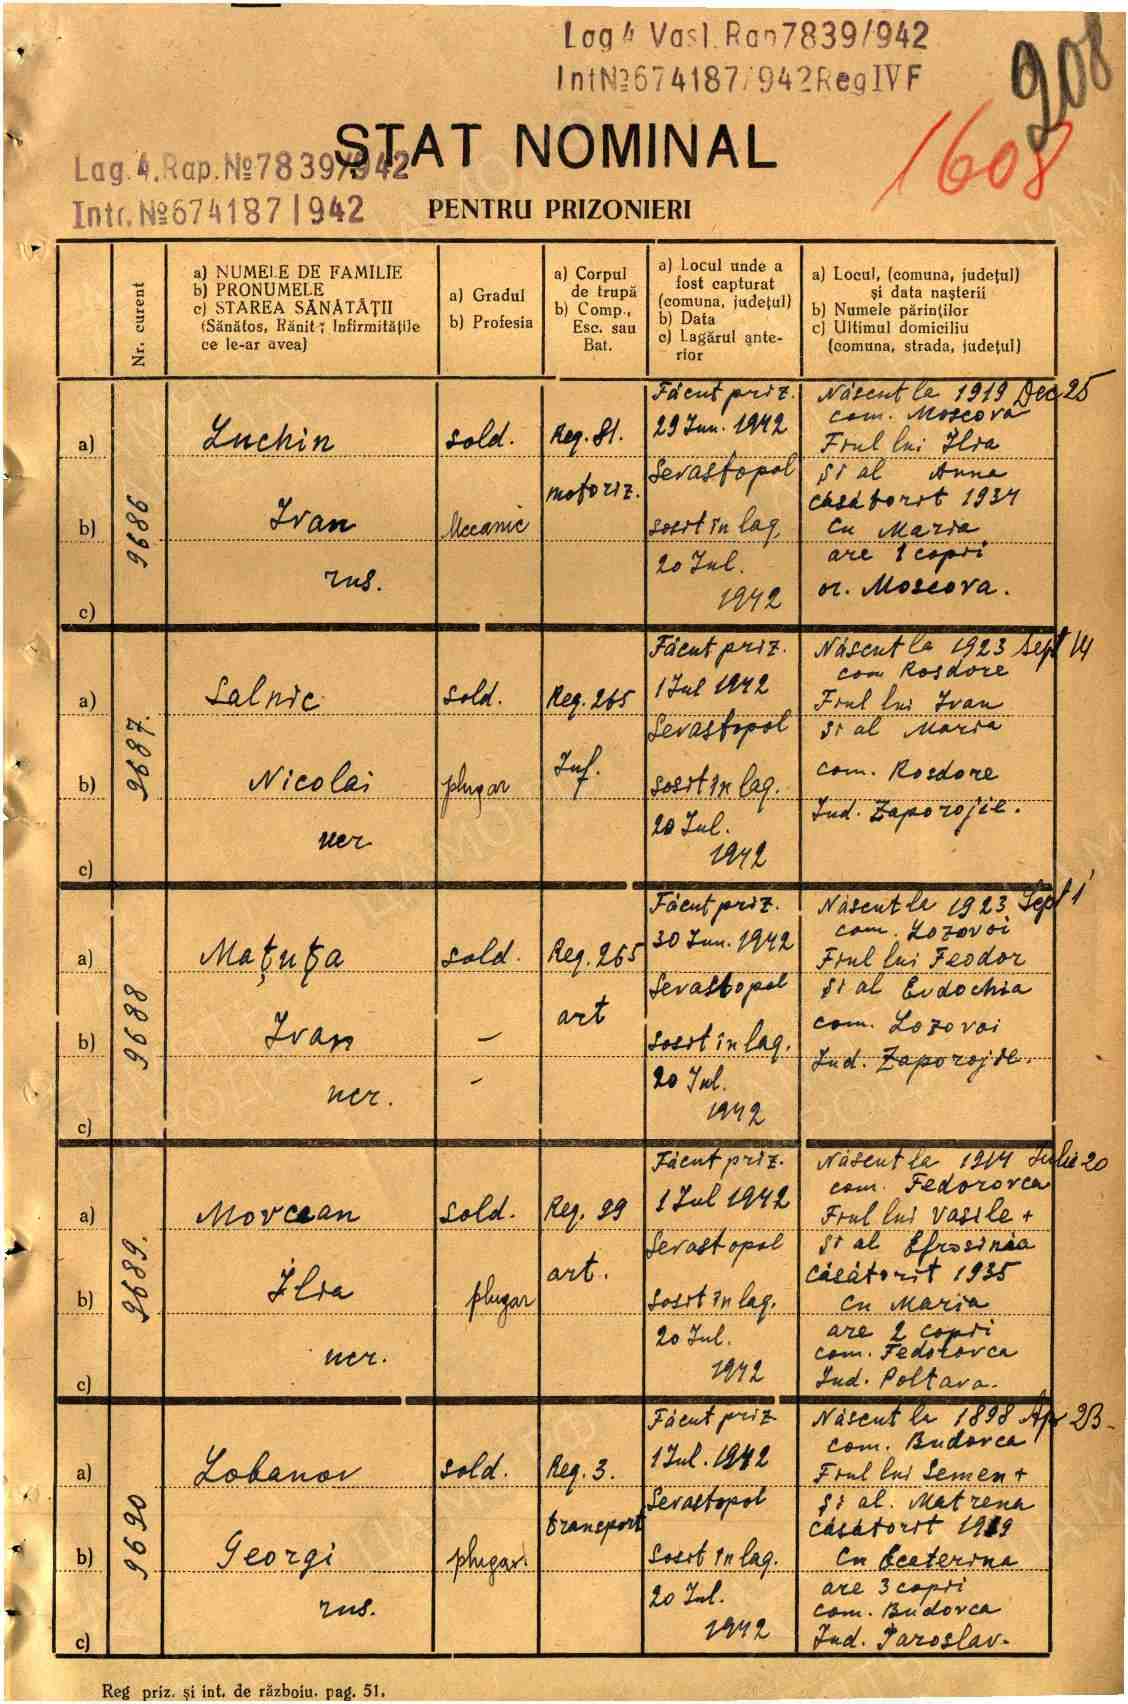 Lag 4 Vasl. Rap 7839/942
Int№674187/942 Reg IV F
208
1608
ȘTAT NOMINAL
Lag. 4. Rap. №7839/942
Intr. №674187/942
PENTRU PRIZONIERI
Nr. curent
a) NUMELE DE FAMILIE
b) PRONUMELE
c) STAREA SĂNĂTĂȚII
(Sănătos, Rănit; Infirmitățile
ce le-ar avea)
a) Gradul
b) Profesia
a) Corpul
de trupă
b) Comp.,
Esc. sau
Bat.
a) Locul unde a
fost capturat
(comuna, județul)
b) Data
c) Lagărul ante-
rior
a) Locul, (comuna, județul)
și data nașterii
b) Numele părinților
c) Ultimul domiciliu
(comuna, strada, județul)
a)
b)
c)
9686
Luchin
Ivan
rus.
sold.
Mecanic
Reg. 81.
motoriz.
Făcut priz.
29 Iun. 1942
Sevastopol
sosit în lag.
20 Iul.
1942
Născut la 1919 Dec 25
com. Moscova
Fiul lui Ilia
și al Anna
căsătorit 1934
cu Maria
are 1 copri
or. Moscova.
a)
b)
c)
9687.
Salnic
Nicolai
ucr.
sold.
plugar
Reg. 265
Inf.
Făcut priz.
1 Iul 1942
Sevastopol
sosit în lag.
20 Iul.
1942
Născut la 1923 Sept 14
com Rosdore
Fiul lui Ivan
și al Maria
com. Rosdore
Iud. Zaporojie.
a)
b)
c)
9688
Mațuța
Ivan
ucr.
sold.
–
–
Reg. 265
art
Făcut priz.
30 Iun. 1942
Sevastopol
sosit în lag.
20 Iul.
1942
Născut la 1923 Sept 1
com. Lozovoi
Fiul lui Feodor
și al Evdochia
com. Lozovoi
Iud. Zaporojie.
a)
b)
c)
9689.
Movcean
Ilia
ucr.
sold.
plugar
Reg. 99
art.
Făcut priz.
1 Iul 1942
Sevastopol
sosit în lag.
20 Iul.
1942
Născut la 1914 Iulie 20
com. Fedorovca
Fiul lui Vasile +
și al Efrosinia
căsătorit 1935
cu Maria
are 2 copri
com. Fedorovca
Iud. Poltava.
a)
b)
c)
9690
Lobanov
Georgi
rus.
sold.
plugar.
Reg. 3.
transport
Făcut priz
1 Iul. 1942
Sevastopol
sosit în lag.
20 Iul.
1942
Născut la 1898 Apr 23
com. Budovca
Fiul lui Semen +
și al. Matrena
căsătorit 1919
cu Ecaterina
are 3 copri
com. Budovca
Iud. Iaroslav.
Reg priz. și int. de războiu. pag. 51.